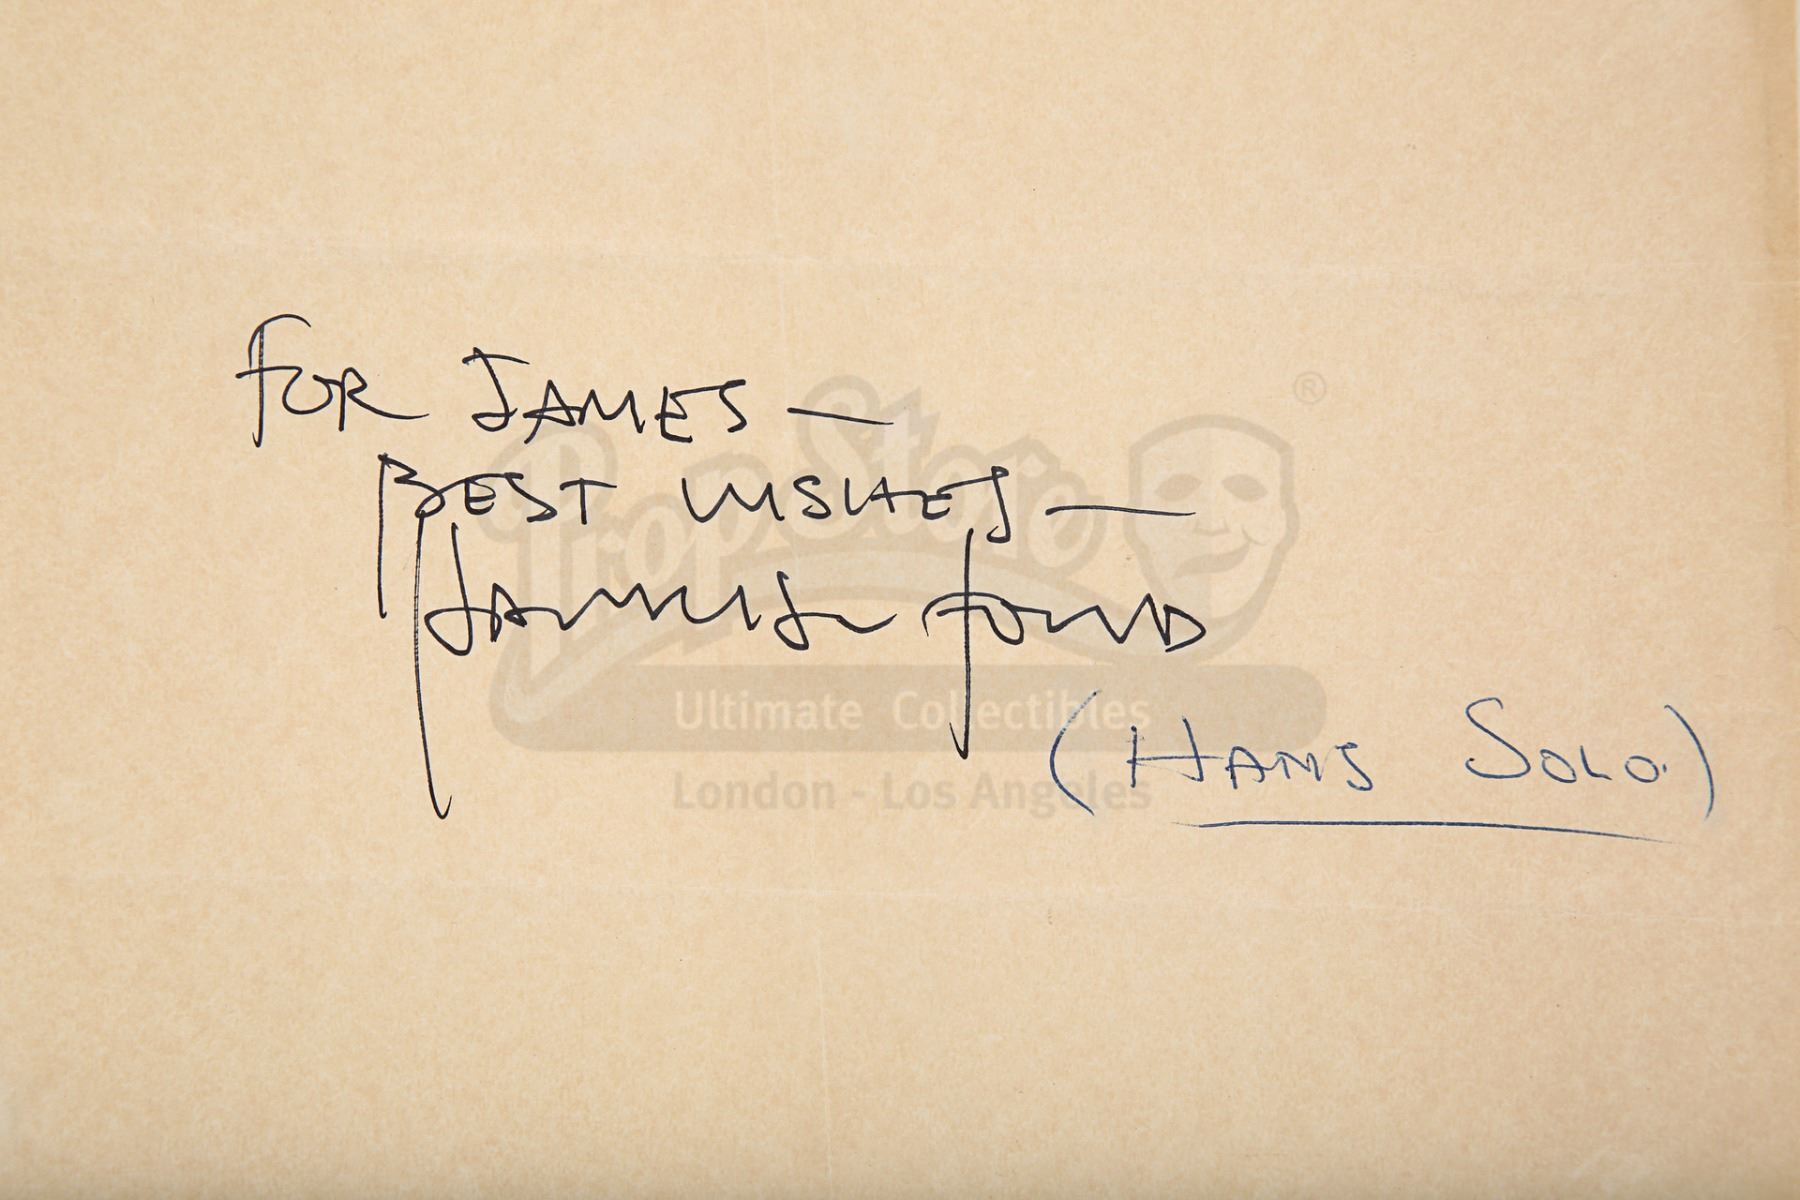 FOR JAMES —
BEST WISHES —
Harrison Ford
(HANS SOLO.)
Prop Store ®
Ultimate Collectibles
London - Los Angeles